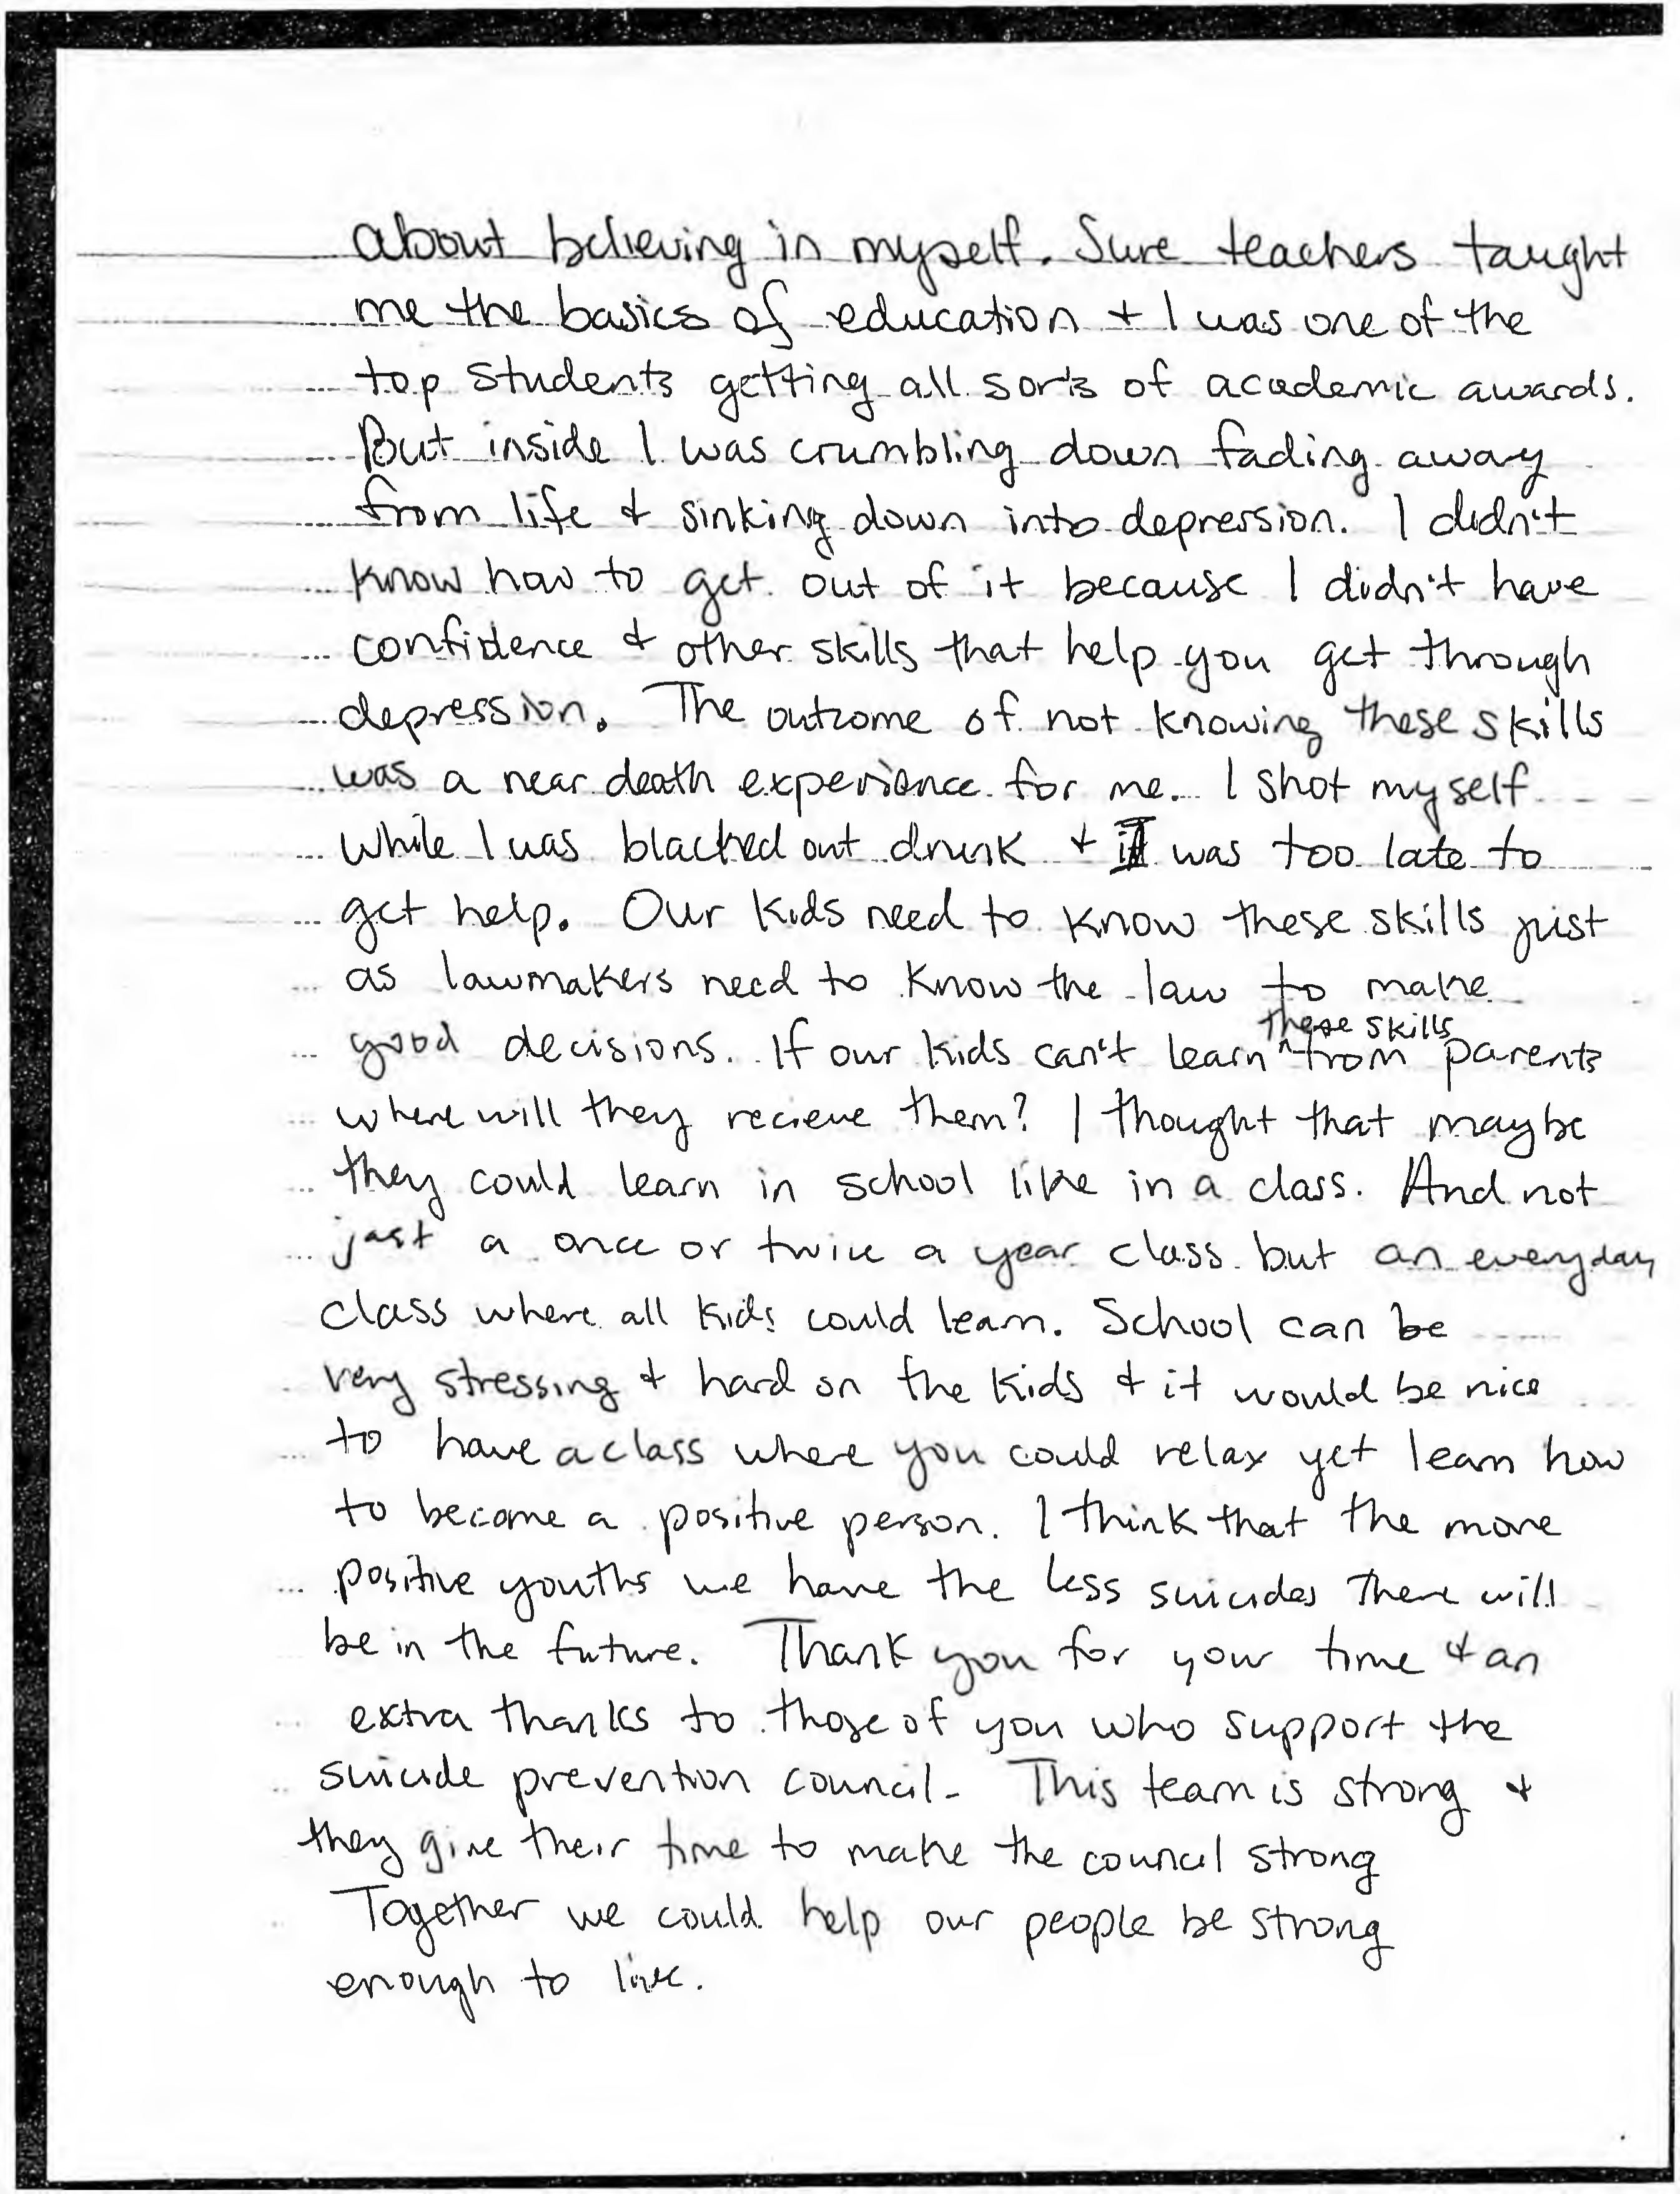 about believing in myself. Sure teachers taught
me the basics of education + I was one of the
top students getting all sorts of academic awards.
But inside I was crumbling down fading away
from life + sinking down into depression. I didn't
know how to get out of it because I didn't have
confidence + other skills that help you get through
depression. The outcome of not knowing these skills
was a near death experience for me. I shot myself
while I was blacked out drunk + it was too late to
get help. Our kids need to know these skills just
as lawmakers need to know the law to make
good decisions. If our kids can't learn ^these skills from parents
where will they recieve them? I thought that maybe
they could learn in school like in a class. And not
just a once or twice a year class but an everyday
class where all kids could learn. School can be
very stressing + hard on the kids + it would be nice
to have a class where you could relax yet learn how
to become a positive person. I think that the more
positive youths we have the less suicides there will
be in the future. Thank you for your time + an
extra thanks to those of you who support the
suicide prevention council. This team is strong +
they give their time to make the council strong
Together we could help our people be strong
enough to live.